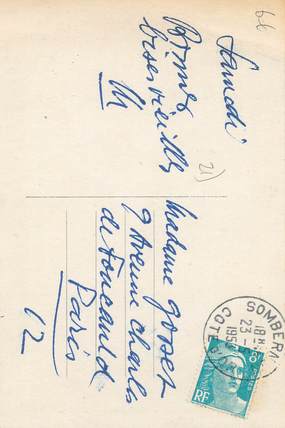 Samedi
Bonnes
bises vieille
66
21)
Madame
9 Avenue Charles
de Foucauld
Paris
12
SOMBERN
18
23 -
195
COTE
8F
RF